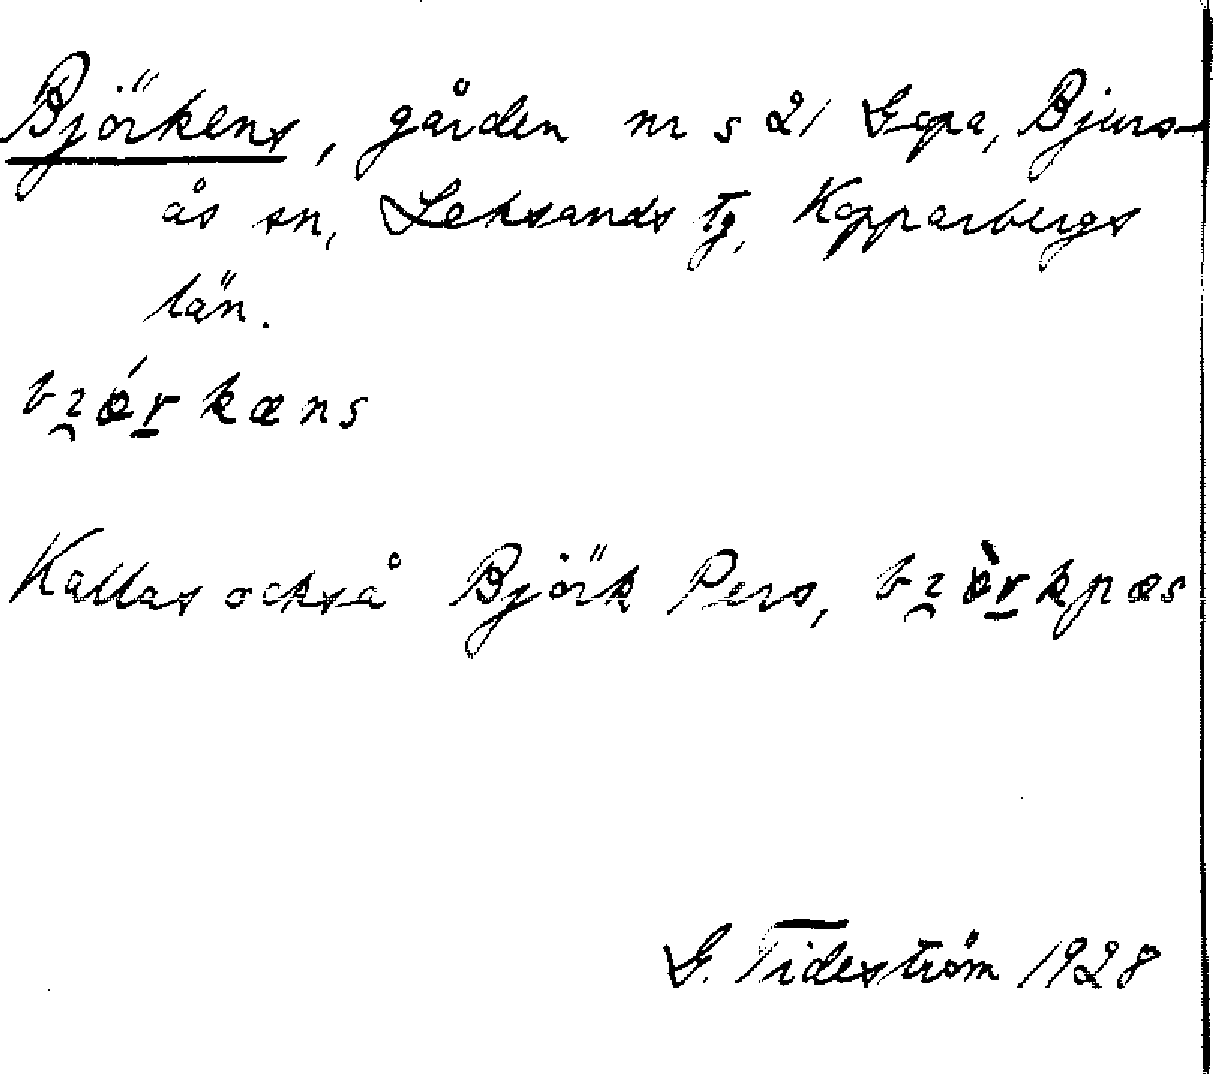 Björkens, gården nr s 21 Gopa, Bjurs-
ås sn, Leksands tg, Kopparbergs
län.
Kallas också Björk Pers,
G. Tideström 1928